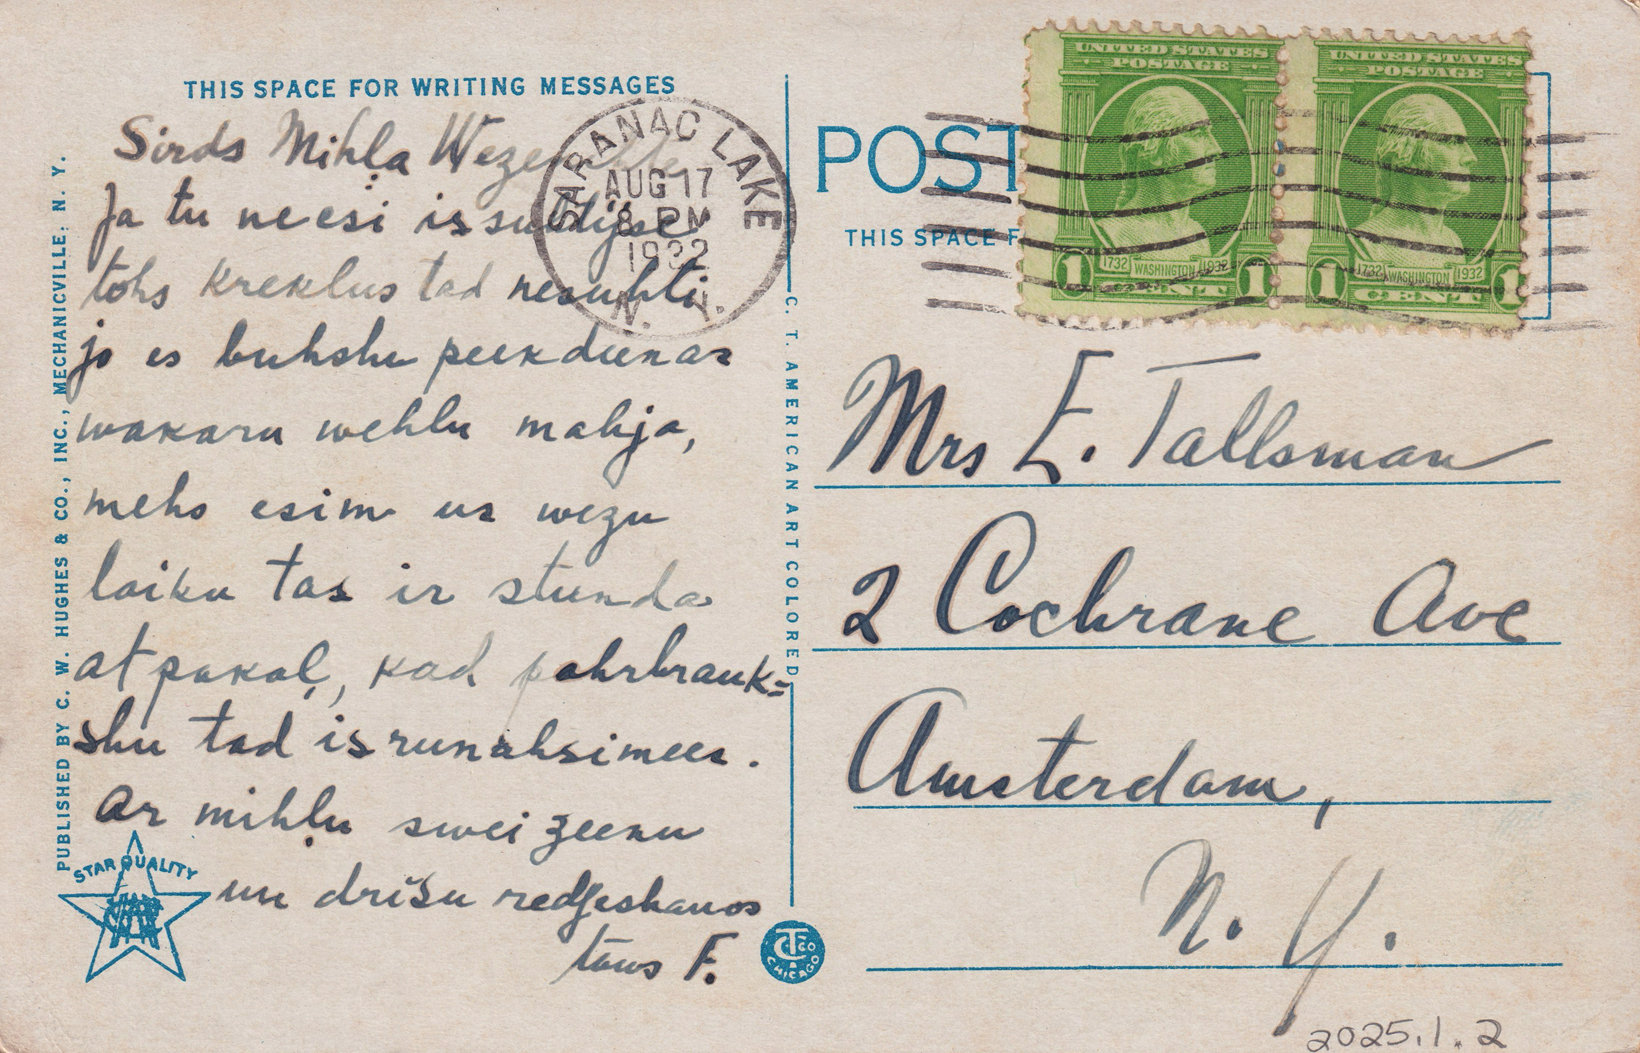 THIS SPACE FOR WRITING MESSAGES
Sirds Mihļa
Ja tu ne esi issuhtijse
tohs kreklus tad nesuhti
jo es buhshu peekdeenas
wakaru wehlu mahja,
mehs esim us wezu
laiku tas ir stunda
atpakaļ, kad pahrbrauk=
shu tad isrunahsimees.
Ar mihļu sweizeenu
un drīsu redseshanos
taws F.
PUBLISHED BY C. W. HUGHES & CO., INC., MECHANICVILLE, N. Y.
STAR QUALITY
C. T. AMERICAN ART COLORED
CT CO
CHICAGO
SARANAC LAKE
AUG 17
8 PM
1932
N. Y.
POST
THIS SPACE F
UNITED STATES
POSTAGE
1732 WASHINGTON 1932
1 CENT 1
UNITED STATES
POSTAGE
1732 WASHINGTON 1932
1 CENT 1
Mrs E. Tallsman
2 Cochrane Ave
Amsterdam,
N. Y.
2025.1.2